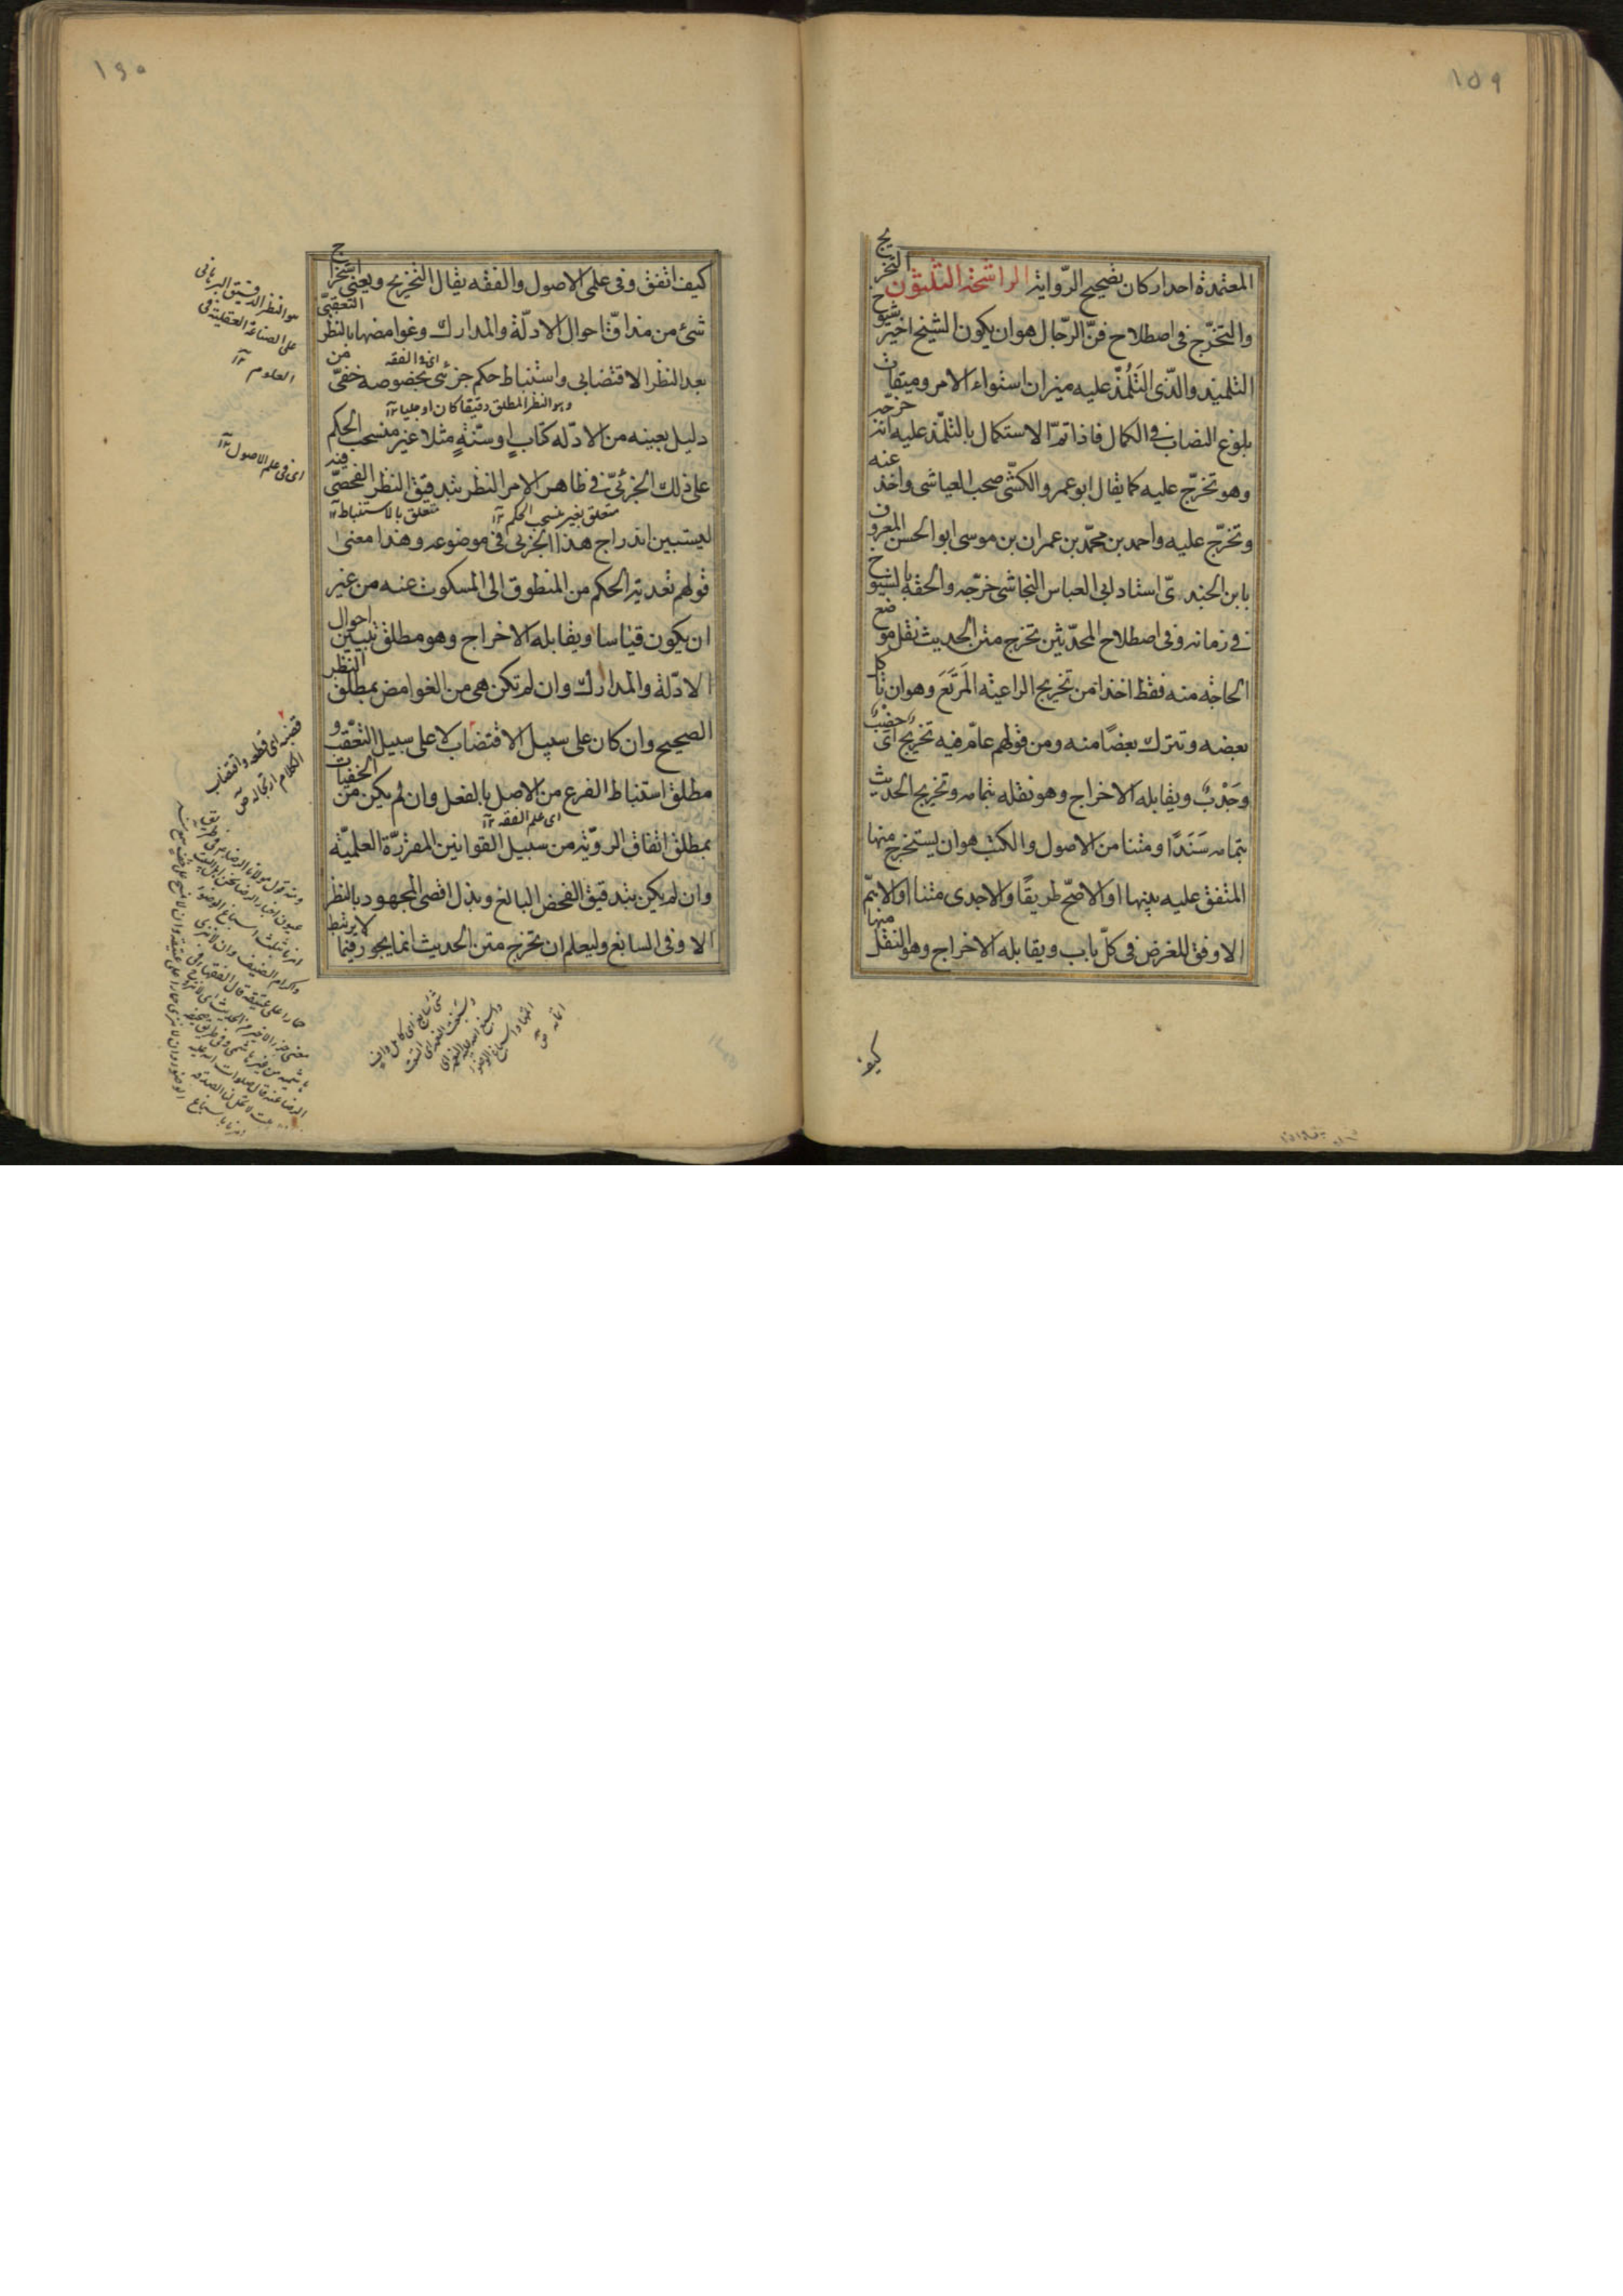 ١٥٩
المعتمدة احد اركان تصحيح الرّواية الراشحة الثلثون التخريج
والتخرّج فى اصطلاح فنّ الرّجال هو ان يكون الشيخ اخير شيوخ
التلميذ والّذى التَلَمُّذ عليه ميزان استواء الامر وميقات
بلوغ النصاب فى الكمال فاذا تمّ الاستكمال بالتلمّذ عليه انّه خرّجه
وهو تخرّج عليه كما يقال ابو عمرو الكشّى صحب العياشى واخذ عنه
وتخرّج عليه واحمد بن محمّد بن عمران بن موسى ابو الحسن المعروف
بابن الجندىّ استاد ابى العباس النجاشى خرّجه والحقه بالشيوخ
فى زمانه وفى اصطلاح المحدّثين تخرج متن الحديث نقل موضع
الحاجة منه فقط اخذا من تخريج الراعية المَرتَعَ وهو ان تاكل
بعضه وتترك بعضًا منه ومن قولهم عام فيه تخريج اى خِصْبٌ
وجَدْبٌ ويقابله الاخراج وهو نقله بتمامه وتخريج الحديث
بتمامه سَنَدًا ومتنا من الاصول والكتب هو ان يستخرج منها
المتفق عليه بينها او الاصحّ طريقًا والاجدى متنا او الاهمّ
الاوفق للغرض فى كلّ باب ويقابله الاخراج وهو النقل منها
كيف
١٦٠
كيف اتفق وفى علمى الاصول والفقه يقال التخريج ويعنى استخراج
شئ من مذاقّ احوال الادلّة والمدارك وغوامضها بالنظر التعقبىّ
اى فى الفقه
بعد النظر الاقتضابى واستنباط حكم جزئى بخصوصه خفىّ من
وهو النظر المطلق دقيقا كان او جليا ١٢
دليل بعينه من الادلّه كتابٍ او سنّةٍ مثلا غير منسحب الحكم
على ذلك الجزئىّ فى ظاهر الامر النظر بتدقيق النظر الفحصىّ فيه
متعلق بغير منسحب الحكم ١٢ متعلق بالاستنباط ١٢
ليستبين اندراج هذا الجزئى فى موضوعه وهذا معنى
قولهم تعدية الحكم من المنطوق الى المسكوت عنه من غير
ان يكون قياسا ويقابله الاخراج وهو مطلق تبيين احوال
الادلّة والمدارك وان لم تكن هى من الغوامض بمطلق النظر
الصحيح وان كان على سبيل الاقتضاب لا على سبيل التعقّب و
مطلق استنباط الفرع من الاصل بالفعل وان لم يكن من الخفيات
اى علم الفقه ١٢
بمطلق اتفاق الرويّة من سبيل القوانين المقررّة العلميّة
وان لم يكن بتدقيق الفحص البالغ وبذل اقصى المجهود بالنظر
الاوفى السابغ وليعلم ان تخرج متن الحديث انما يجوز فيما لا يرتبط
هو النظر الدقيق البرهانى
على الصناعة العقلية فى
العلوم ١٢
اى فى علم الاصول ١٢
قضبه اى قطعه واقتضاب
الكلام ارتجاله ص
شئ سابغ اى كامل واف